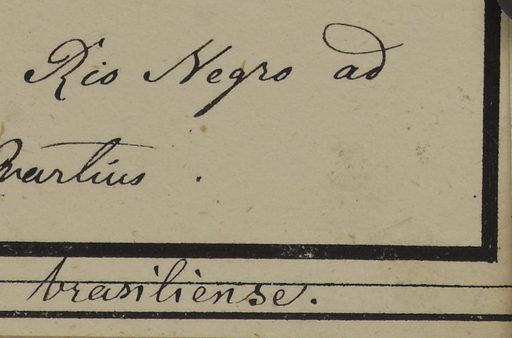 Rio Negro ad
Martius .
brasiliense.